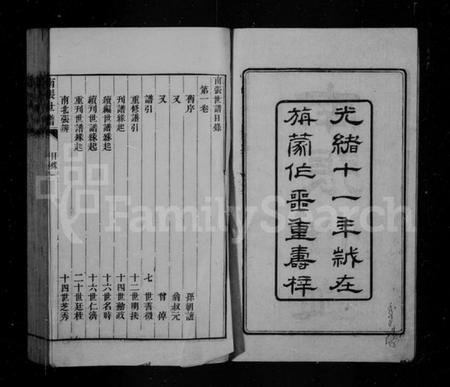 光緒十一年歲在
旃蒙作噩重壽梓
南張世譜目錄
第一卷
舊序 孫朝讓
又 翁叔元
又 曾倬
譜引 七世舊徵
重修譜引 十二世明扶
刋譜緣起 十四世勷政
續編世譜緣起 十六世名時
續刊世譜緣起 十六世仁濟
重刊世譜緣起 二十世廷桂
南北張辨 十四世芝秀
南張世譜
目錄
FamilySearch